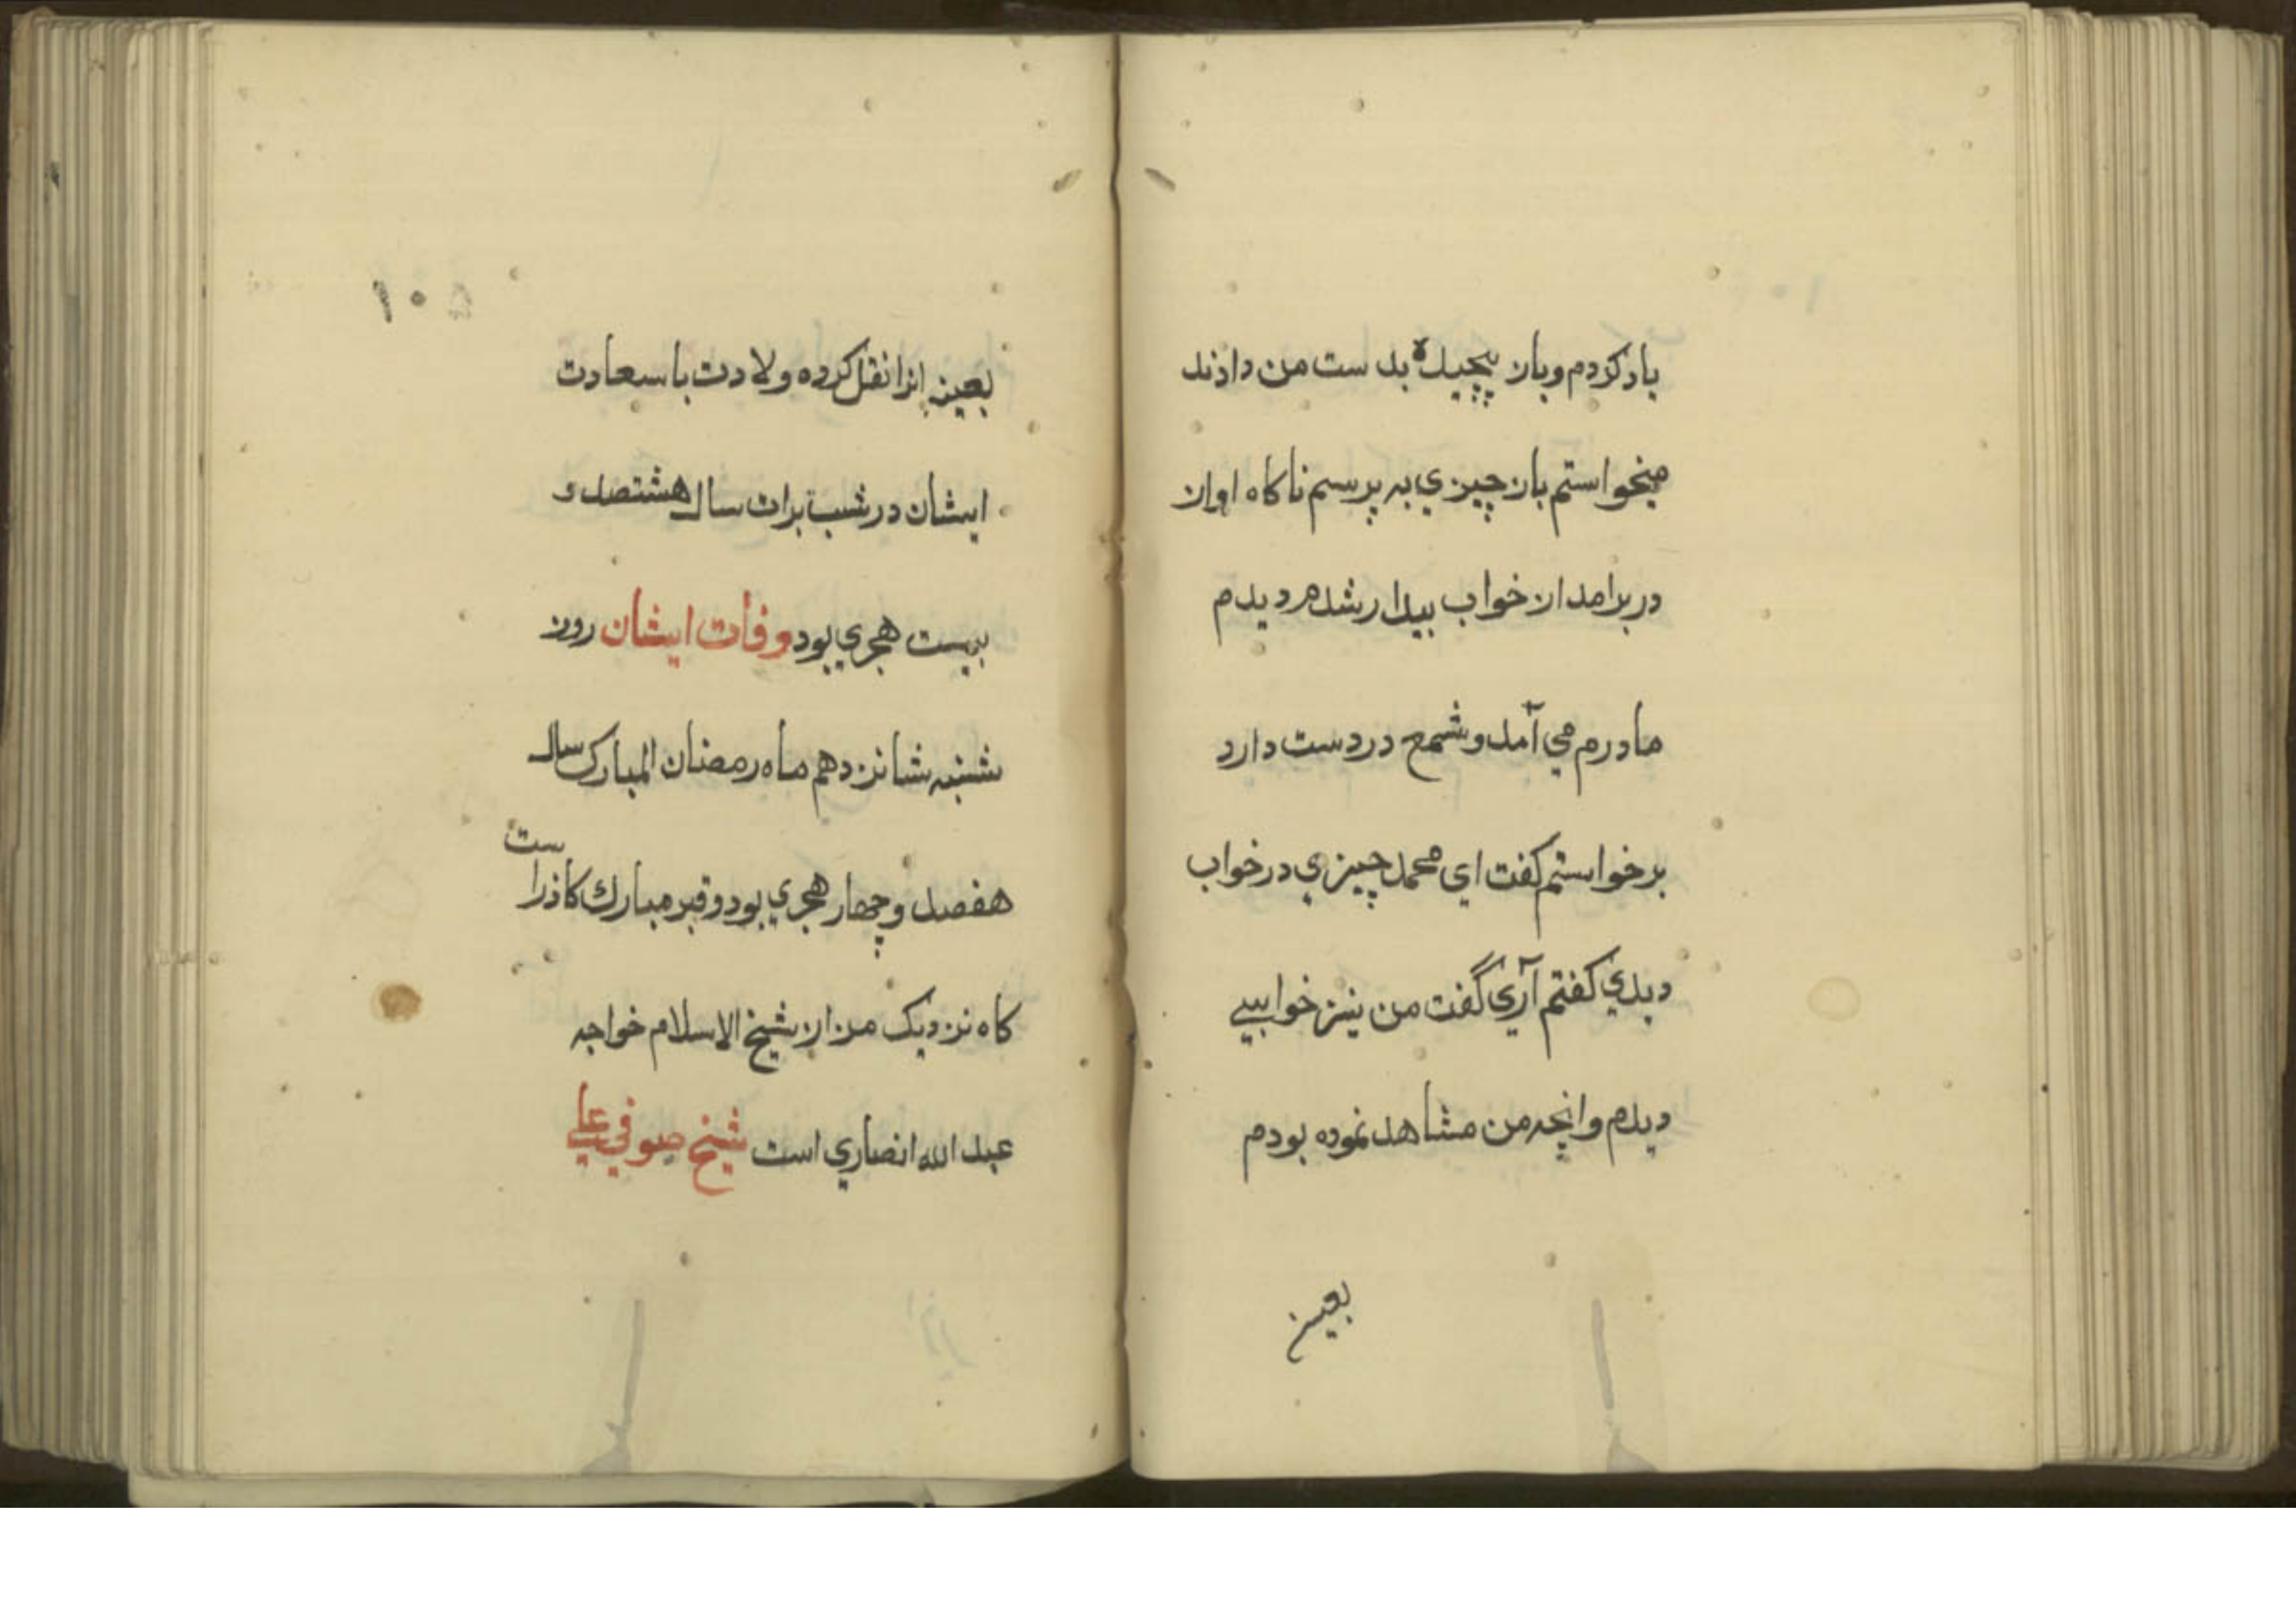 یاد کردم و بان پیچیدهٔ بدست من دادند
میخواستم بان چیزی به پرسم ناکاه اوان
در برامد ان خواب بیدار شدم دیدم
مادرم می آمد و شمع در دست دارد
برخواستم کفت ای محمد چیزی در خواب
دیدی کفتم آری گفت من نیز خوابی
دیدم وانچه من مشاهد نموده بودم
بعین
۱۰۵
بعینه انرا نقل کرده ولادت با سعادت
ایشان در شب برات سال هشتصد و
بیست هجری بود وفات ایشان روز
شنبه شانزدهم ماه رمضان المبارک سال
هفصد و چهار هجری بود و قبر مبارک
ست
کاه نزدیک مزار شیخ الاسلام خواجه
عبد الله انصاری است شیخ صوفی علی